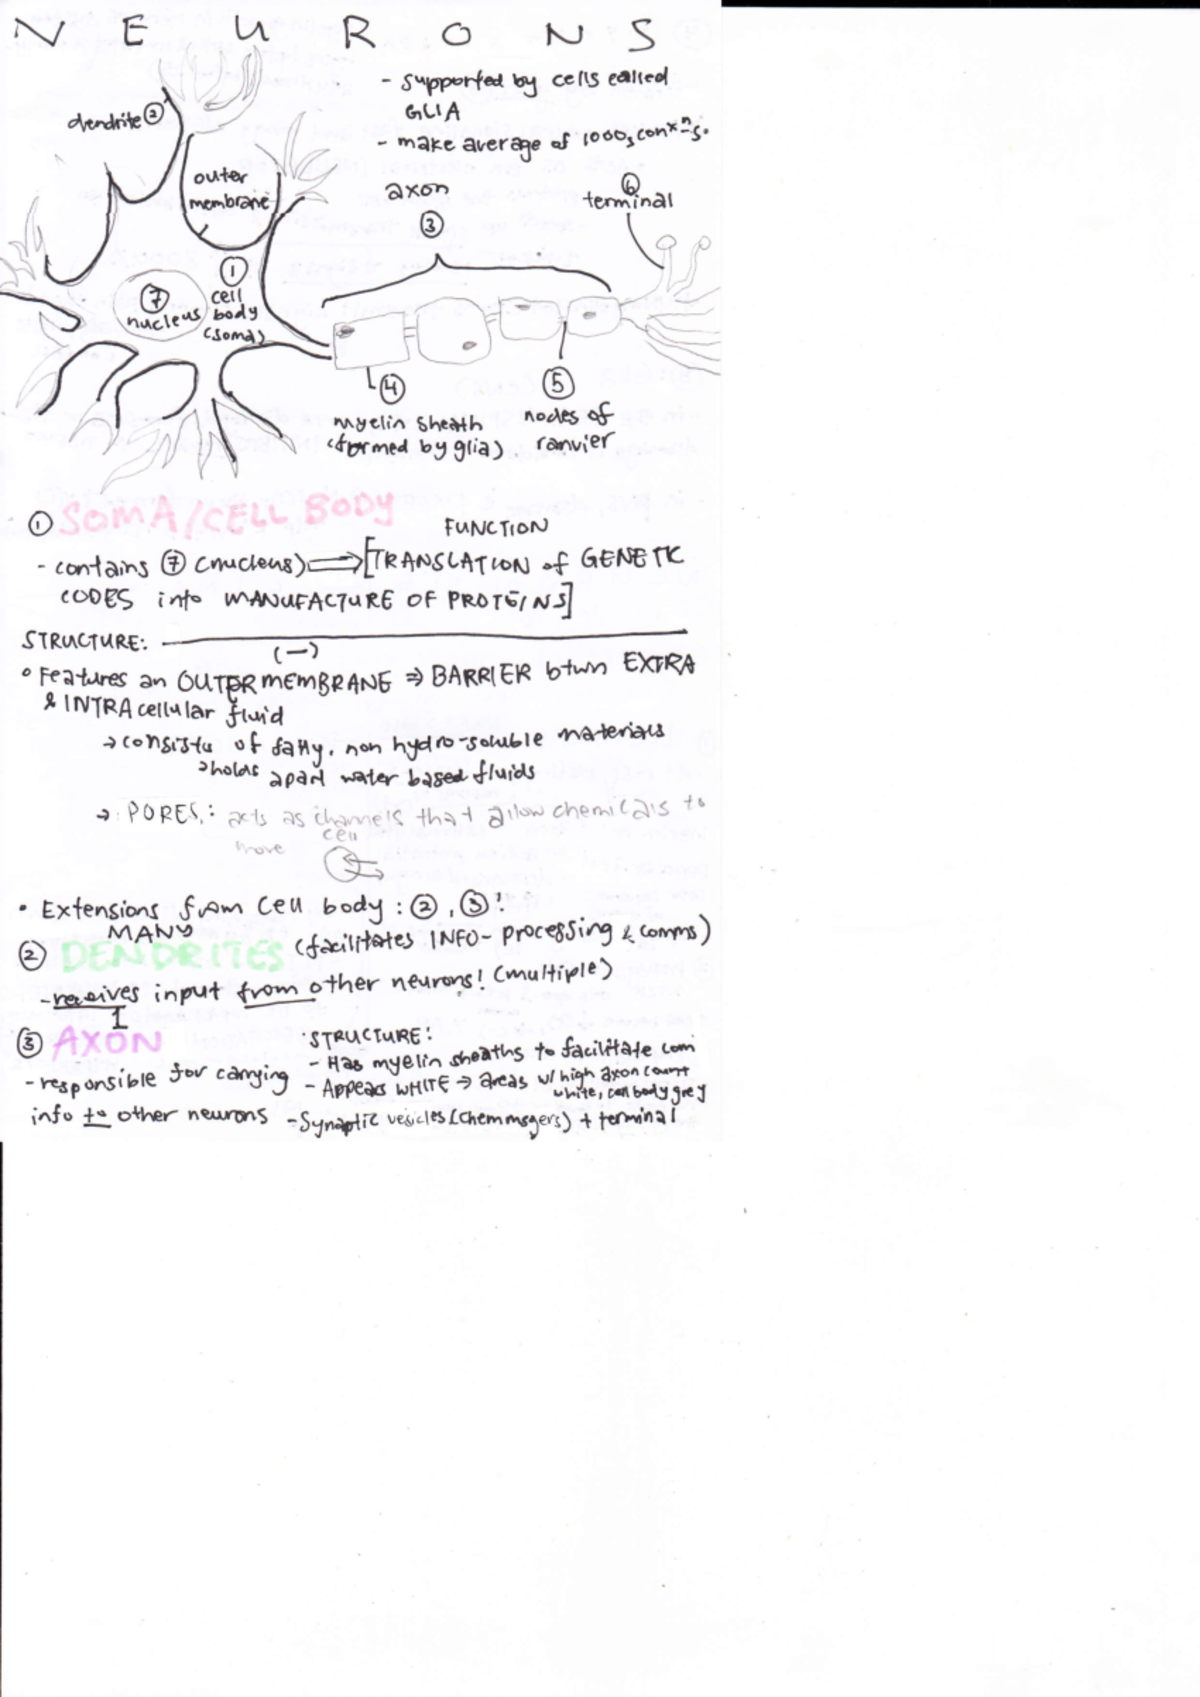 NEURONS
- supported by cells called
GLIA
- make average of 1000s conxns.
dendrite ②
outer
membrane
axon
③
⑥
terminal
①
cell
body
(soma)
⑦
nucleus
④
myelin sheath
(formed by glia)
⑤
nodes of
ranvier
① SOMA/CELL BODY
FUNCTION
- contains ⑦ (nucleus) ⟹ [TRANSLATION of GENETIC
CODES into MANUFACTURE OF PROTEINS]
STRUCTURE:
(—)
° Features an OUTER MEMBRANE ⇒ BARRIER btwn EXTRA
& INTRA cellular fluid
→ consists of fatty, non hydro-soluble materials
→ holds apart water based fluids
→ PORES: acts as channels that allow chemicals to
move
cell
• Extensions from cell body: ②, ③!
MANY
② DENDRITES (facilitates INFO-processing & comms)
- receives input from other neurons! (multiple)
1
③ AXON
- responsible for carrying
info to other neurons
·STRUCTURE:
- Has myelin sheaths to facilitate com
- Appears WHITE → areas w/ high axon count
white, cell body grey
- Synaptic vesicles (chem msgers) + terminal